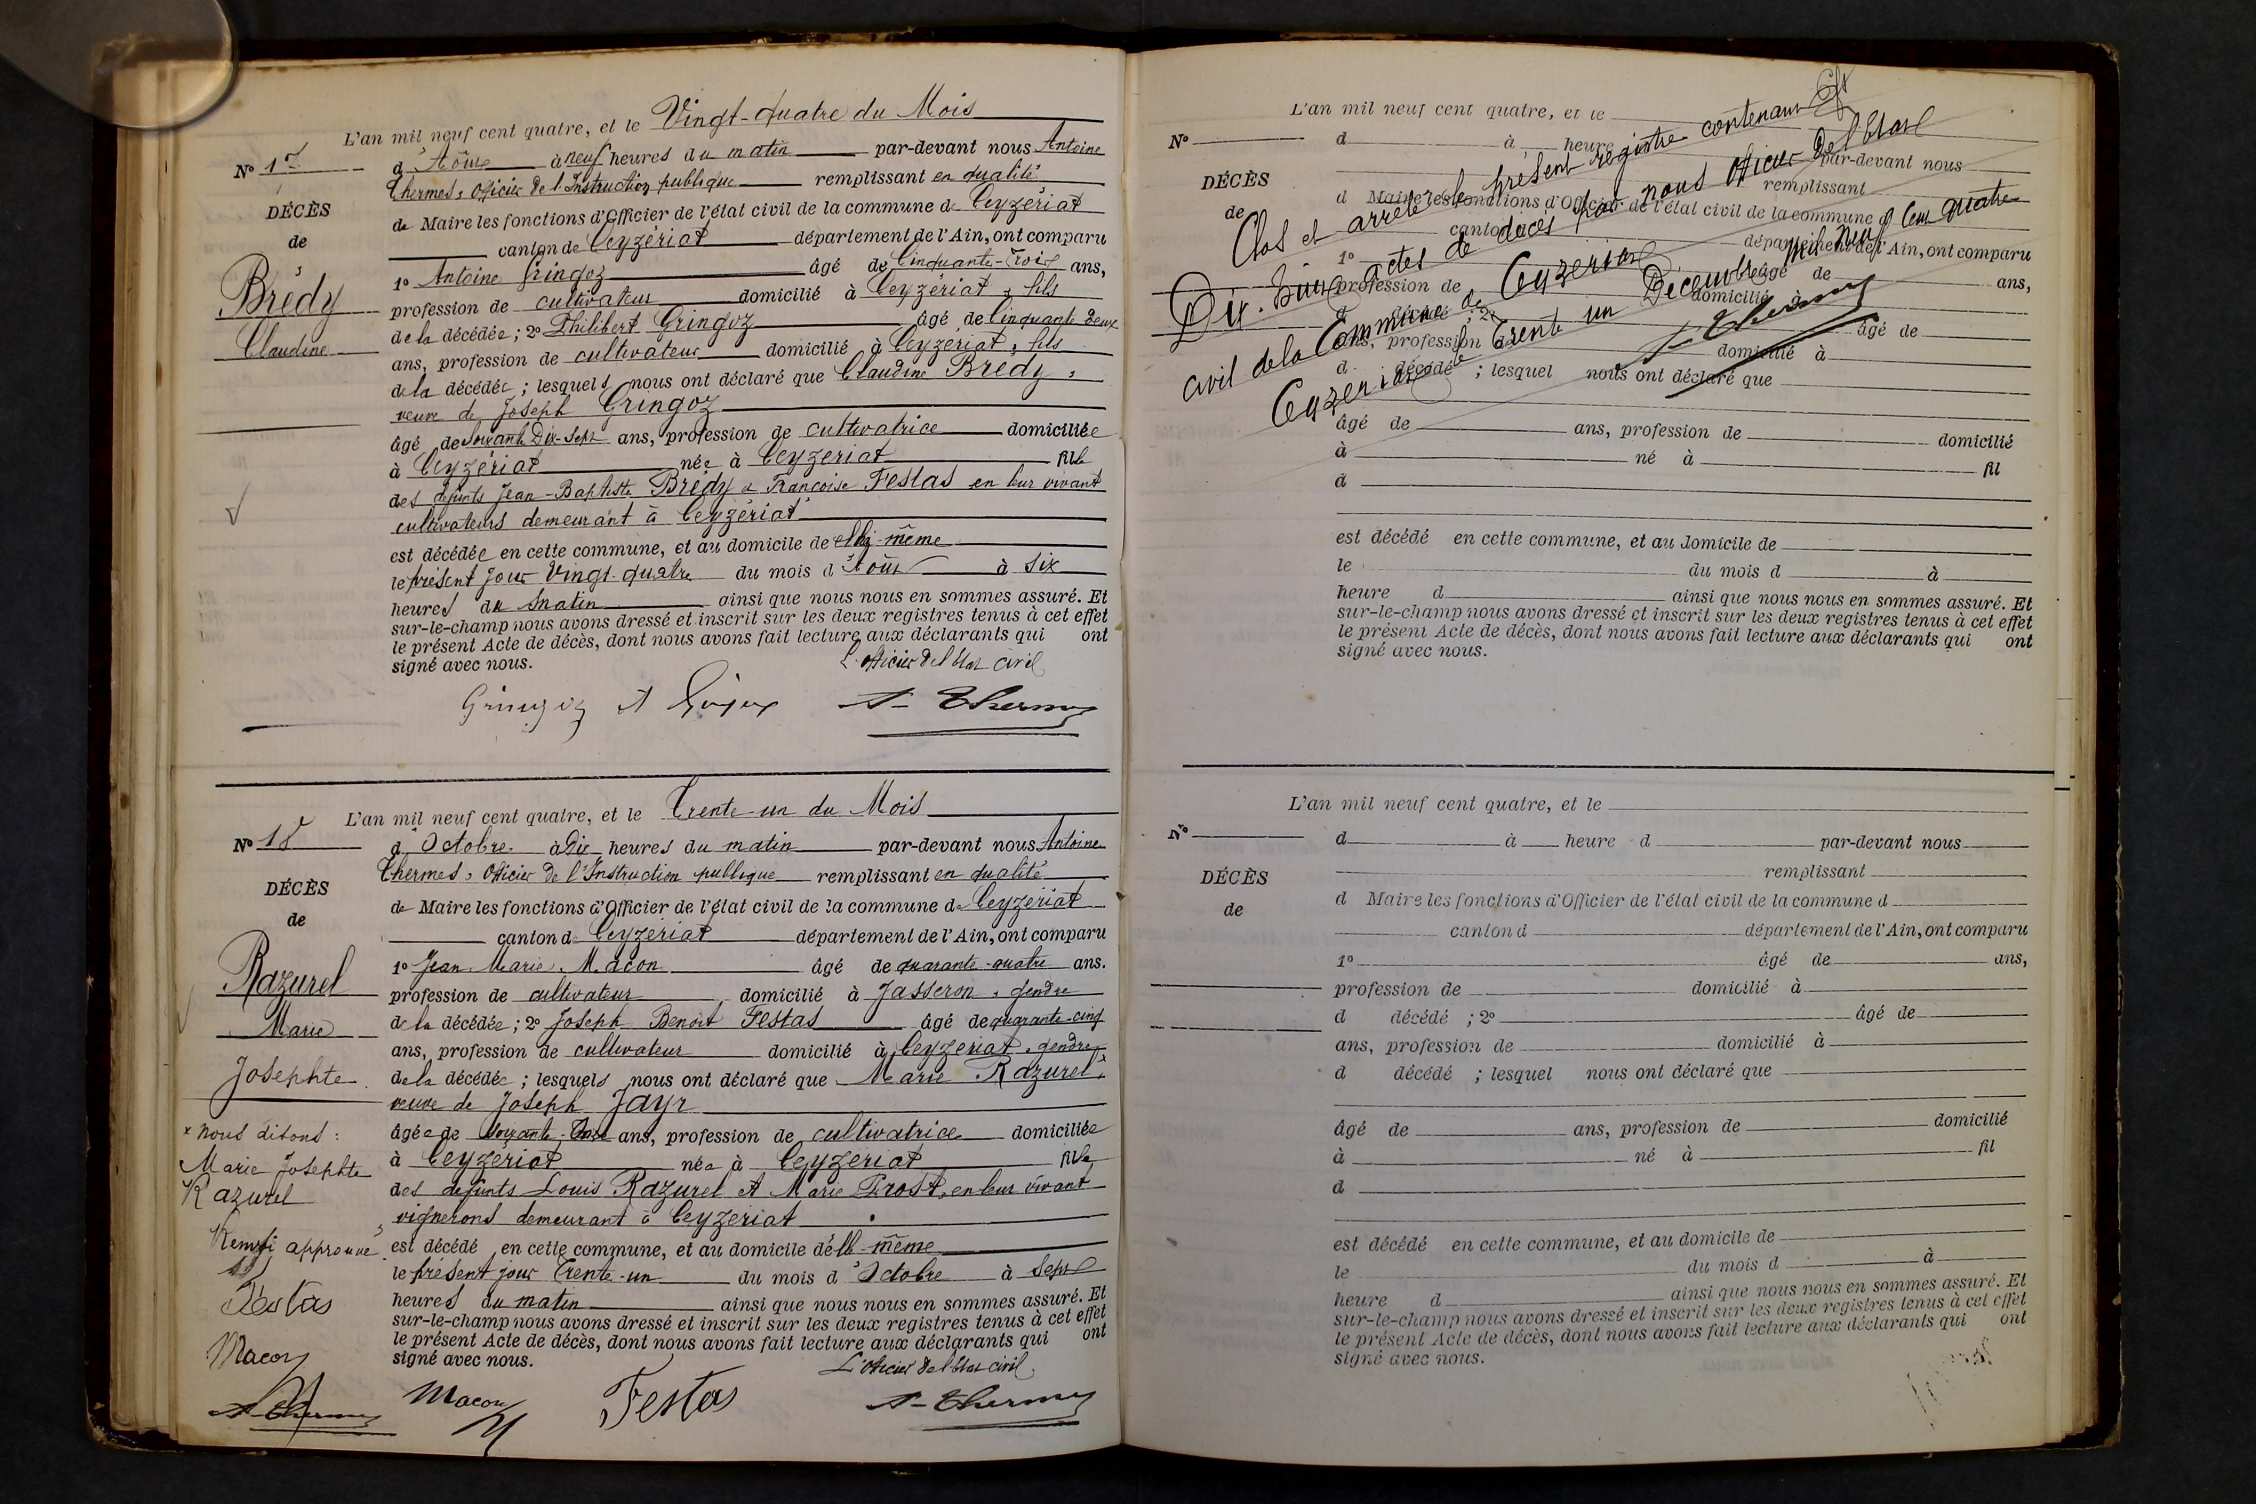 L'an mil neuf cent quatre, et le Vingt-quatre du Mois
No 17 d'Août à neuf heures du matin par-devant nous Antoine
Thermes, Officier de l'Instruction publique remplissant en qualité
DÉCÈS
de Maire les fonctions d'Officier de l'état civil de la commune de Ceyzériat
de
canton de Ceyzériat département de l'Ain, ont comparu
1o Antoine Gringoz âgé de Cinquante-trois ans,
Brédy
profession de cultivateur domicilié à Ceyzériat, fils
Claudine
de la décédée ; 2o Philibert Gringoz âgé de Cinquante deux
ans, profession de cultivateur domicilié à Ceyzériat, fils
de la décédée ; lesquels nous ont déclaré que Claudine Brédy,
veuve de Joseph Gringoz
âgé de Soixante Dix-Sept ans, profession de cultivatrice domiciliée
à Ceyzériat née à Ceyzériat fille
des défunts Jean-Baptiste Brédy et Françoise Festas en leur vivant
cultivateurs demeurant à Ceyzériat
est décédée en cette commune, et au domicile de elle-même
le présent jour Vingt-quatre du mois d'Août à six
heures du matin ainsi que nous nous en sommes assuré. Et
sur-le-champ nous avons dressé et inscrit sur les deux registres tenus à cet effet
le présent Acte de décès, dont nous avons fait lecture aux déclarants qui ont
signé avec nous.
L'officier de l'Etat civil
A. Thermes
L'an mil neuf cent quatre, et le Trente-un du Mois
No 18 d'Octobre à Dix heures du matin par-devant nous Antoine
Thermes, Officier de l'Instruction publique remplissant en qualité
DÉCÈS
de Maire les fonctions d'Officier de l'état civil de la commune de Ceyzériat
de
canton de Ceyzériat département de l'Ain, ont comparu
1o Jean Marie Macon âgé de quarante-quatre ans.
Razurel
profession de cultivateur domicilié à Jasseron, gendre
Marie
de la décédée ; 2o Joseph Benoit Festas âgé de quarante-cinq
ans, profession de cultivateur domicilié à Ceyzériat, gendre
Josephte
de la décédée ; lesquels nous ont déclaré que Marie Razurel, x
veuve de Joseph Jayr
x Nous disons :
âgée de soixante-onze ans, profession de cultivatrice domiciliée
Marie Josephte
à Ceyzériat née à Ceyzériat fille
Razurel
des défunts Louis Razurel et Marie Prost, en leur vivant
vignerons demeurant à Ceyzériat
Renvoi approuvé
est décédé en cette commune, et au domicile d'elle-même
le présent jour Trente-un du mois d'Octobre à Sept
Festas
heures du matin ainsi que nous nous en sommes assuré. Et
sur-le-champ nous avons dressé et inscrit sur les deux registres tenus à cet effet
le présent Acte de décès, dont nous avons fait lecture aux déclarants qui ont
Macon
signé avec nous.
L'officier de l'Etat civil
A. Thermes
Macon Festas A. Thermes
L'an mil neuf cent quatre, et le
No d à heure par-devant nous
remplissant
DÉCÈS
d Maire les fonctions d'Officier de l'état civil de la commune d
de
canton d département de l'Ain, ont comparu
1o âgé de ans,
profession de domicilié à
d décédé ; 2o âgé de
ans, profession de domicilié à
d décédé ; lesquel nous ont déclaré que
Clos et arrêté le présent registre contenant
Dix-huit actes de décès par nous officier de l'Etat
civil de la Commune de Ceyzériat
Ceyzériat le Trente un Décembre mil neuf cent quatre
A. Thermes
âgé de ans, profession de domicilié
à né à fil
d
est décédé en cette commune, et au domicile de
le du mois d à
heure d ainsi que nous nous en sommes assuré. Et
sur-le-champ nous avons dressé et inscrit sur les deux registres tenus à cet effet
le présent Acte de décès, dont nous avons fait lecture aux déclarants qui ont
signé avec nous.
L'an mil neuf cent quatre, et le
No d à heure d par-devant nous
remplissant
DÉCÈS
d Maire les fonctions d'Officier de l'état civil de la commune d
de
canton d département de l'Ain, ont comparu
1o âgé de ans,
profession de domicilié à
d décédé ; 2o âgé de
ans, profession de domicilié à
d décédé ; lesquel nous ont déclaré que
âgé de ans, profession de domicilié
à né à fil
d
est décédé en cette commune, et au domicile de
le du mois d à
heure d ainsi que nous nous en sommes assuré. Et
sur-le-champ nous avons dressé et inscrit sur les deux registres tenus à cet effet
le présent Acte de décès, dont nous avons fait lecture aux déclarants qui ont
signé avec nous.